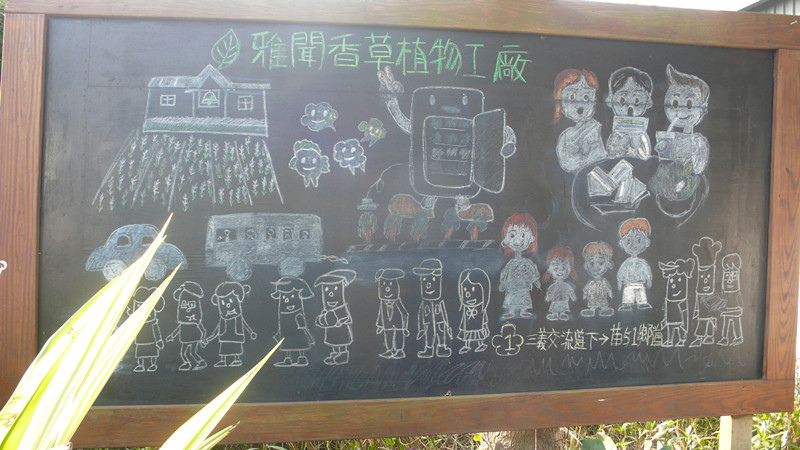 雅聞香草植物工廠
1 三義交流道下→苗51鄉道